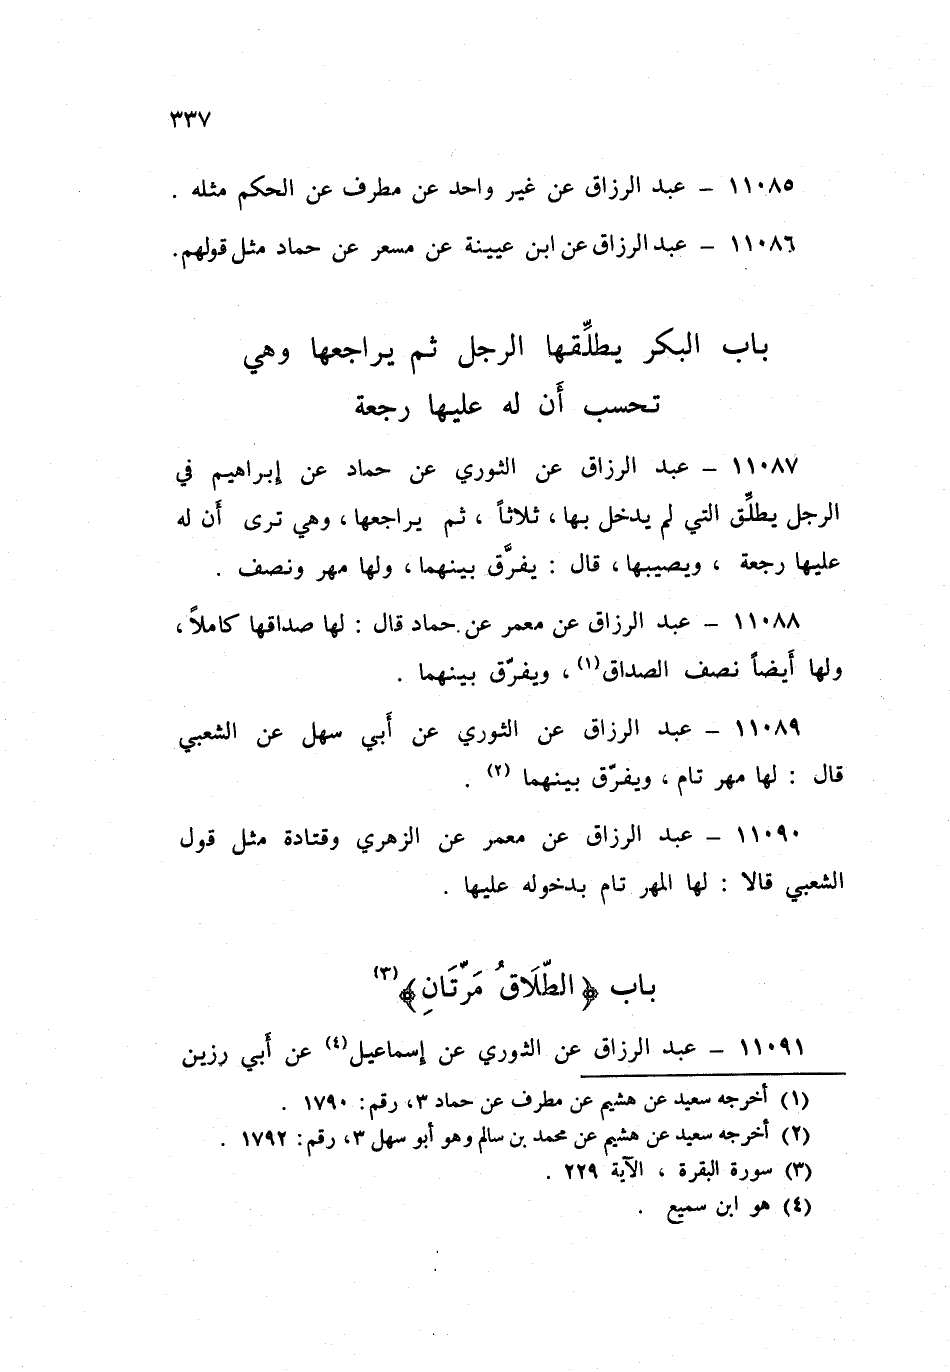 ٣٣٧
١١٠٨٥ – عبد الرزاق عن غير واحد عن مطرف عن الحكم مثله .
١١٠٨٦ – عبد الرزاق عن ابن عيينة عن مسعر عن حماد مثل قولهم.
باب البكر يطلِّقها الرجل ثم يراجعها وهي
تحسب أَن له عليها رجعة
١١٠٨٧ – عبد الرزاق عن الثوري عن حماد عن إبراهيم في
الرجل يطلِّق التي لم يدخل بها ، ثلاثاً ، ثم يراجعها ، وهي ترى أَن له
عليها رجعة ، ويصيبها ، قال : يفرَّق بينهما ، ولها مهر ونصف .
١١٠٨٨ – عبد الرزاق عن معمر عن حماد قال : لها صداقها كاملاً ،
ولها أَيضاً نصف الصداق(١) ، ويفرّق بينهما .
١١٠٨٩ – عبد الرزاق عن الثوري عن أَبي سهل عن الشعبي
قال : لها مهر تام ، ويفرّق بينهما (٢) .
١١٠٩٠ – عبد الرزاق عن معمر عن الزهري وقتادة مثل قول
الشعبي قالا : لها المهر تام بدخوله عليها .
باب ﴿الطّلَاقُ مَرّتَانِ﴾(٣)
١١٠٩١ – عبد الرزاق عن الثوري عن إسماعيل(٤) عن أَبي رزين
(١) أخرجه سعيد عن هشيم عن مطرف عن حماد ٣، رقم : ١٧٩٠ .
(٢) أخرجه سعيد عن هشيم عن محمد بن سالم وهو أبو سهل ٣، رقم : ١٧٩٢ .
(٣) سورة البقرة ، الآية ٢٢٩ .
(٤) هو ابن سميع .